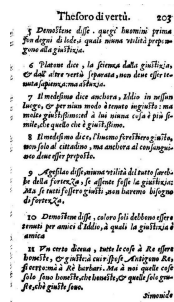 Thesoro di vertù. 203
5 Demostene disse. quegl' huomini prima
son degni di lode, a quali niuna vilità prepon-
gono alla giustizia.
6 Platone dice, la scienza dalla giustizia,
& dall' altre vertù separata, non deve esser te-
nuta sapienza; ma astutia.
7 Il medesimo dice anchora, Iddio in nessun
luogo, & per niun modo è tenuto ingiusto: ma
molto giustissimo: & a lui niuna cosa è più si-
mile, che quello che è giustissimo.
8 Il medesimo dice, l'huomo ferestiero giusto,
non solo al cittadino, ma anchora al consangui-
neo deve esser preposto.
9 Agesilao disse, niuna vilità del tutto sareb-
be della fortezza, se assente fosse la giustizia.
Ma se tutti fossero giusti, non haremo bisogno
di fortezza.
10 Demostene disse, coloro soli debbono essere
tenuti per amici d'Iddio, à quali la giustizia è
amica
11 Un certo diceva, tutte le cose à Re essere
honeste, & giuste: à cui rispose Antigono Re,
si certo: ma à Rè barbari. Ma à noi quelle cose
solo sono honeste, che honeste, & quelle solo giu-
ste, chè giuste sono.
Simonide